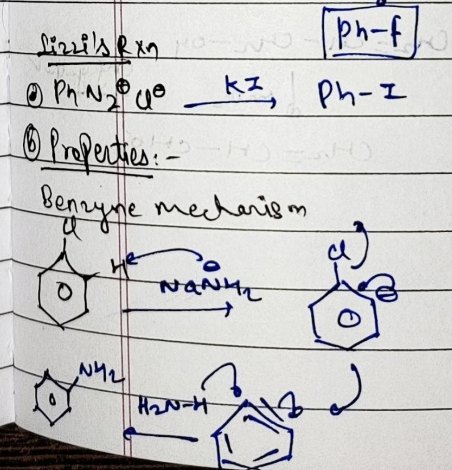 Ph-f
Lizzi's Rxn
ⓐ Ph N2⊕ Cl⊖ KI Ph-I
ⓑ Properties:-
Benzyne mechanism
Cl
H ⊖ NaNH2 Cl ⊖
NH2 H2N-H